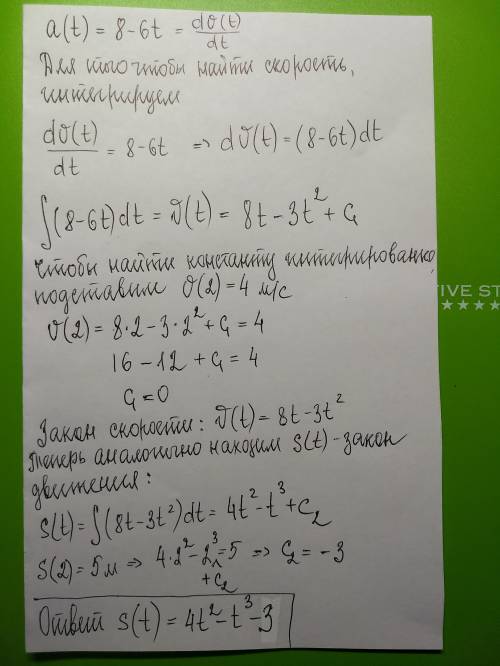 a(t) = 8-6t = dϑ(t)/dt
Для того чтобы найти скорость,
интегрируем
dϑ(t)/dt = 8-6t => dϑ(t) = (8-6t)dt
∫(8-6t)dt = ϑ(t) = 8t - 3t² + C₁
Чтобы найти константу интегрирования,
подставим ϑ(2) = 4 м/с
ϑ(2) = 8·2 - 3·2² + C₁ = 4
16 - 12 + C₁ = 4
C₁ = 0
Закон скорости: ϑ(t) = 8t - 3t²
Теперь аналогично находим S(t) - закон
движения:
S(t) = ∫(8t - 3t²)dt = 4t² - t³ + C₂
S(2) = 5м => 4·2² - 2³ + C₂ = 5 => C₂ = -3
Ответ S(t) = 4t² - t³ - 3
TIVE ST
★★★★★